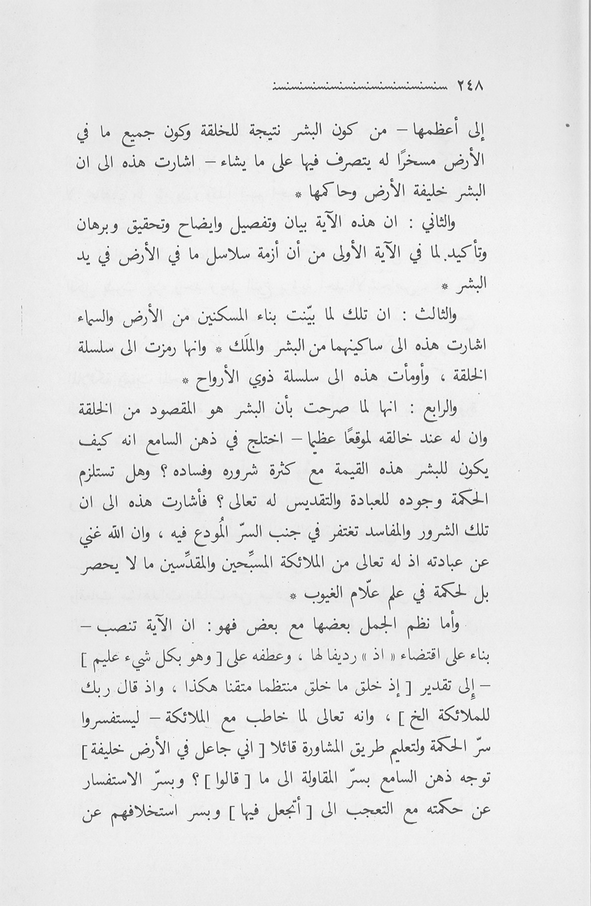 ٢٤٨
إلى أعظمها – من كون البشر نتيجة للخلقة وكون جميع ما في
الأرض مسخرًا له يتصرف فيها على ما يشاء – اشارت هذه الى ان
البشر خليفة الأرض وحاكمها *
والثاني : ان هذه الآية بيان وتفصيل وايضاح وتحقيق وبرهان
وتأكيد. لما في الآية الأولى من أن أزمة سلاسل ما في الأرض في يد
البشر *
والثالث : ان تلك لما بيّنت بناء المسكنين من الأرض والسماء
اشارت هذه الى ساكينهما من البشر والملَك * وانها رمزت الى سلسلة
الخلقة ، وأومأت هذه الى سلسلة ذوي الأرواح *
والرابع : انها لما صرحت بأن البشر هو المقصود من الخلقة
وان له عند خالقه لموقعًا عظيما – اختلج في ذهن السامع انه كيف
يكون للبشر هذه القيمة مع كثرة شروره وفساده ؟ وهل تستلزم
الحكمة وجوده للعبادة والتقديس له تعالى ؟ فأشارت هذه الى ان
تلك الشرور والمفاسد تغتفر في جنب السرّ المُودع فيه ، وان الله غني
عن عبادته اذ له تعالى من الملائكة المسبِّحين والمقدِّسين ما لا يحصر
بل لحكمة في علم علّام الغيوب *
وأما نظم الجمل بعضها مع بعض فهو : ان الآية تنصب –
بناء على اقتضاء « اذ » رديفا لها ، وعطفه على [ وهو بكل شيء عليم ]
– إلى تقدير [ إذ خلق ما خلق منتظما متقنا هكذا ، واذ قال ربك
للملائكة الخ ] ، وانه تعالى لما خاطب مع الملائكة – ليستفسروا
سرّ الحكمة ولتعليم طريق المشاورة قائلا [ اني جاعل في الأرض خليفة ]
توجه ذهن السامع بسرّ المقاولة الى ما [ قالوا ] ؟ وبسرّ الاستفسار
عن حكمته مع التعجب الى [ أتجعل فيها ] وبسر استخلافهم عن